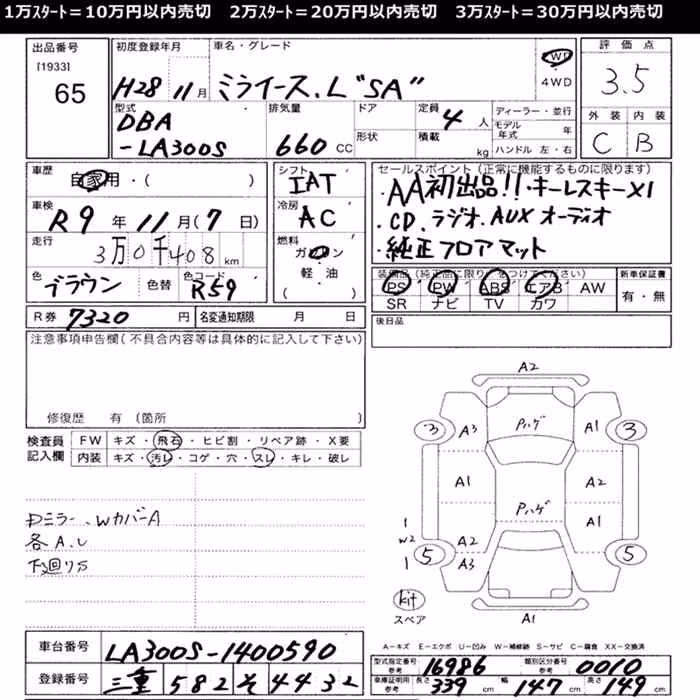 1万ｽﾀｰﾄ＝10万円以内売切　2万ｽﾀｰﾄ＝20万円以内売切　3万ｽﾀｰﾄ＝30万円以内売切
出品番号
[1933]
65
初度登録年月
H28 11月
車名・グレード
ミライース、L "SA"
2WD
4WD
評価点
3.5
外装 内装
C B
型式
DBA
-LA300S
排気量
660 CC
ドア
形状
定員 4 人
積載 kg
ディーラー・並行
モデル年式 年
ハンドル 左・右
車歴
自家用・( )
車検
R9 年 11 月 (7 日)
走行
3万0千408 km
色
ブラウン
色替
色コード
R59
シフト
IAT
冷房
AC
燃料
ガソリン
軽油
( )
セールスポイント(正常に機能するものに限ります)
・AA初出品!!・キーレスキーX1
・CD、ラジオ、AUXオーディオ
・純正フロアマット
装備品(純正品に限り○をつけてください)
PS PW ABS エアB AW
SR ナビ TV カワ
新車保証書
有・無
R券 7320 円
名変通知期限 月 日
後日品
注意事項申告欄(不具合内容等は具体的に記入して下さい)
修復歴 有 (箇所 )
検査員
記入欄
FW キズ・飛石・ヒビ割・リペア跡・X要
内装 キズ・汚レ・コゲ・穴・スレ・キレ・破レ
Dミラー、WカバーA
各A.U
下廻リS
A2
3 A3 Pハゲ A1 3
A1 A2
Pハゲ
1
W2
1
A2 A1
5 A3 5
kit
スペア
A1
車台番号
LA300S-1400590
登録番号
三重 582 そ 4432
A－キズ E－エクボ U－凹ミ W－補修跡 S－サビ C－腐食 XX－交換済
型式指定番号
参考
16986
類別区分番号
参考
0010
車庫証明用
参考
長さ 339 cm 幅 147 cm 高さ 149 cm